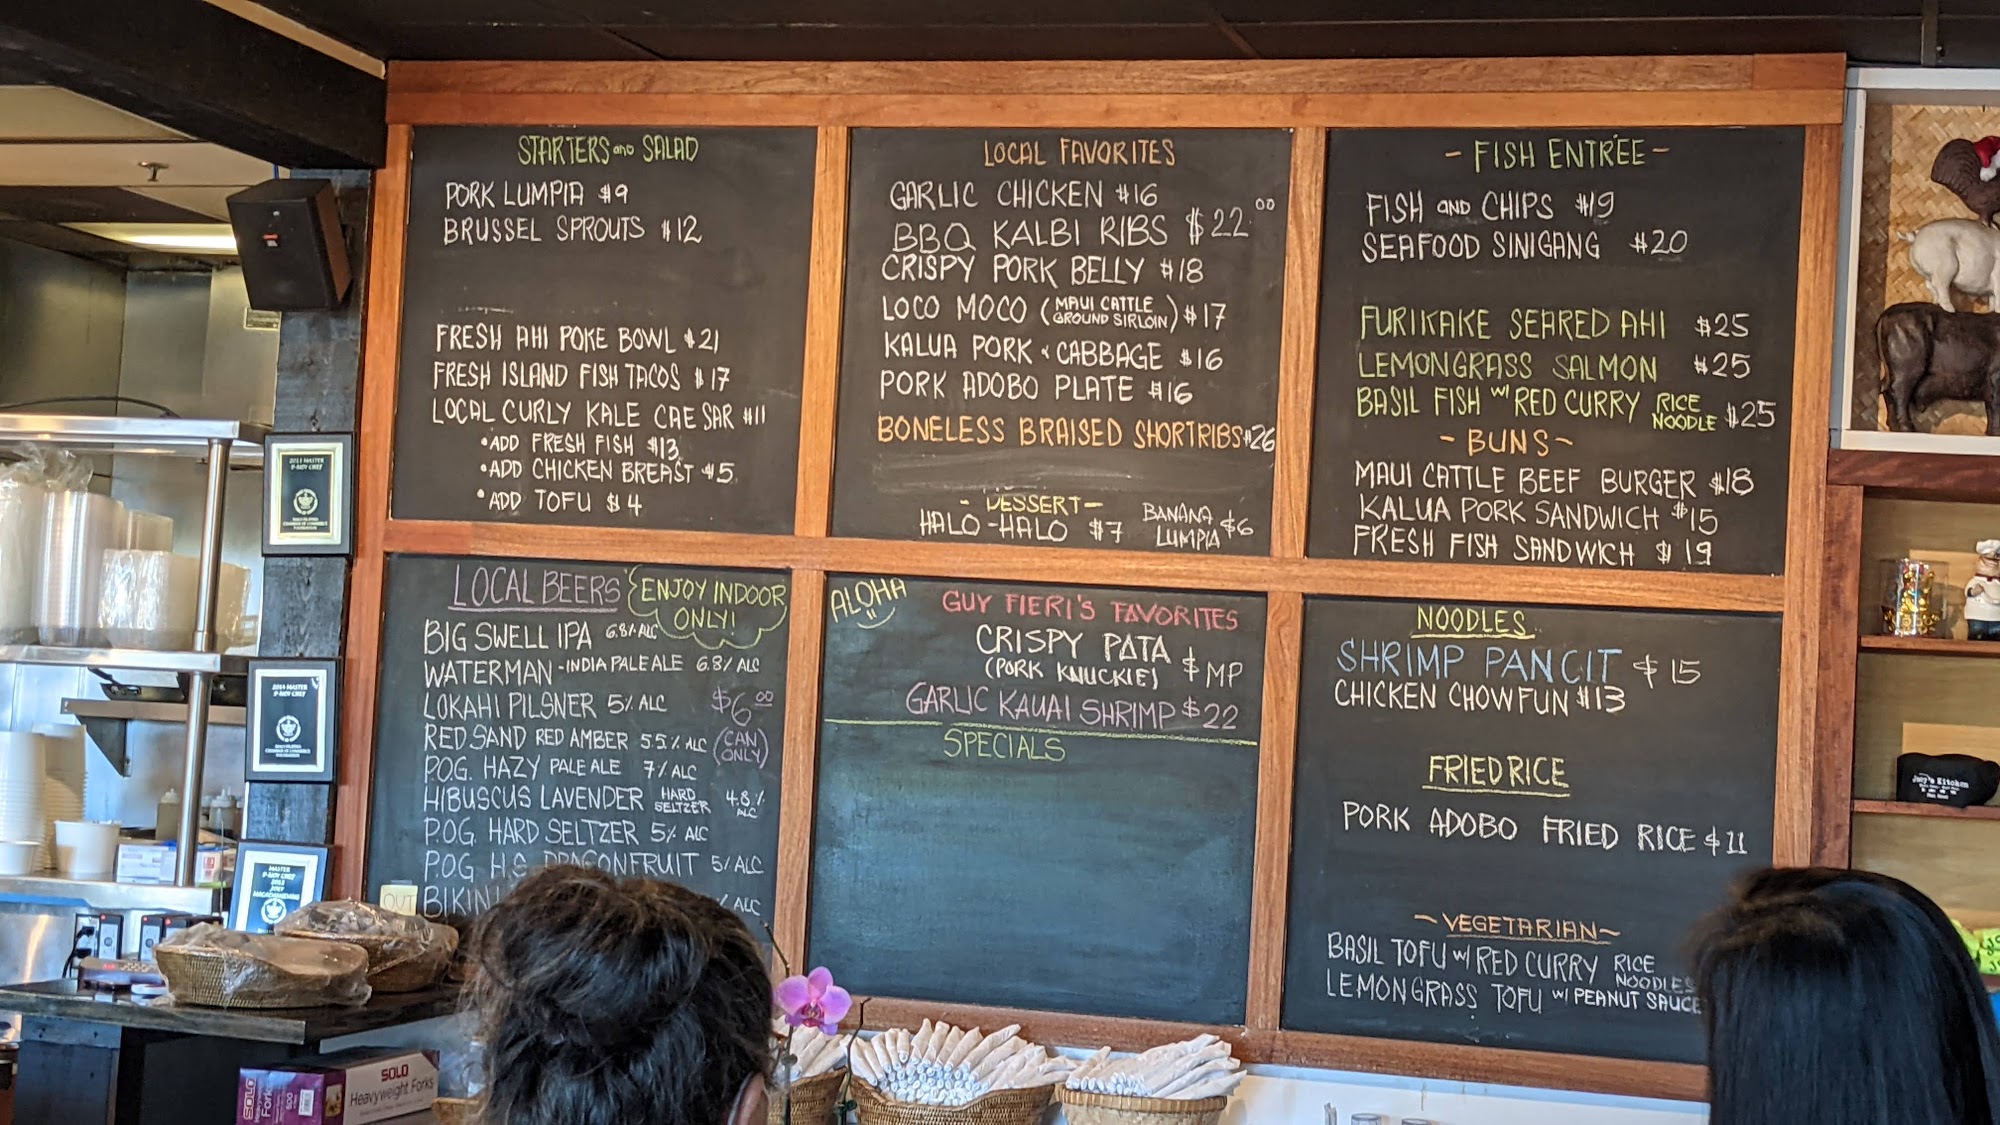 STARTERS and SALAD
PORK LUMPIA $9
BRUSSEL SPROUTS $12
FRESH AHI POKE BOWL $21
FRESH ISLAND FISH TACOS $17
LOCAL CURLY KALE CAESAR $11
•ADD FRESH FISH $13
•ADD CHICKEN BREAST $5
•ADD TOFU $4
LOCAL FAVORITES
GARLIC CHICKEN $16
BBQ KALBI RIBS $22.00
CRISPY PORK BELLY $18
LOCO MOCO (MAUI CATTLE GROUND SIRLOIN) $17
KALUA PORK & CABBAGE $16
PORK ADOBO PLATE $16
BONELESS BRAISED SHORTRIBS $26
- DESSERT -
HALO-HALO $7
BANANA LUMPIA $6
- FISH ENTRÉE -
FISH AND CHIPS $19
SEAFOOD SINIGANG $20
FURIKAKE SEARED AHI $25
LEMONGRASS SALMON $25
BASIL FISH W/ RED CURRY RICE NOODLE $25
- BUNS ~
MAUI CATTLE BEEF BURGER $18
KALUA PORK SANDWICH $15
FRESH FISH SANDWICH $19
LOCAL BEERS
ENJOY INDOOR ONLY!
BIG SWELL IPA 6.8% ALC
WATERMAN - INDIA PALE ALE 6.8% ALC
LOKAHI PILSNER 5% ALC
RED SAND RED AMBER 5.5% ALC
P.O.G. HAZY PALE ALE 7% ALC
HIBUSCUS LAVENDER HARD SELTZER 4.8% ALC
P.O.G. HARD SELTZER 5% ALC
P.O.G. H.S. DRAGONFRUIT 5% ALC
BIKINI
% ALC
OUT
$6.00
(CAN ONLY)
ALOHA
GUY FIERI'S FAVORITES
CRISPY PATA
(PORK KNUCKIE) $MP
GARLIC KAUAI SHRIMP $22
SPECIALS
NOODLES
SHRIMP PANCIT $15
CHICKEN CHOWFUN $13
FRIED RICE
PORK ADOBO FRIED RICE $11
~VEGETARIAN~
BASIL TOFU W/ RED CURRY RICE NOODLES
LEMONGRASS TOFU W/ PEANUT SAUCE
2014 MASTER
P-NOY CHEF
MASTER
P-NOY CHEF
SOLO
Heavyweight Forks
SOLO
Joey's Kitchen